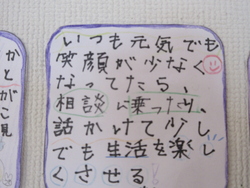 いつも元気でも
笑顔が少なく
なってたら、
相談に乗ったり、
話かけて少し
でも生活を楽し
くさせる
かと
がこ
見